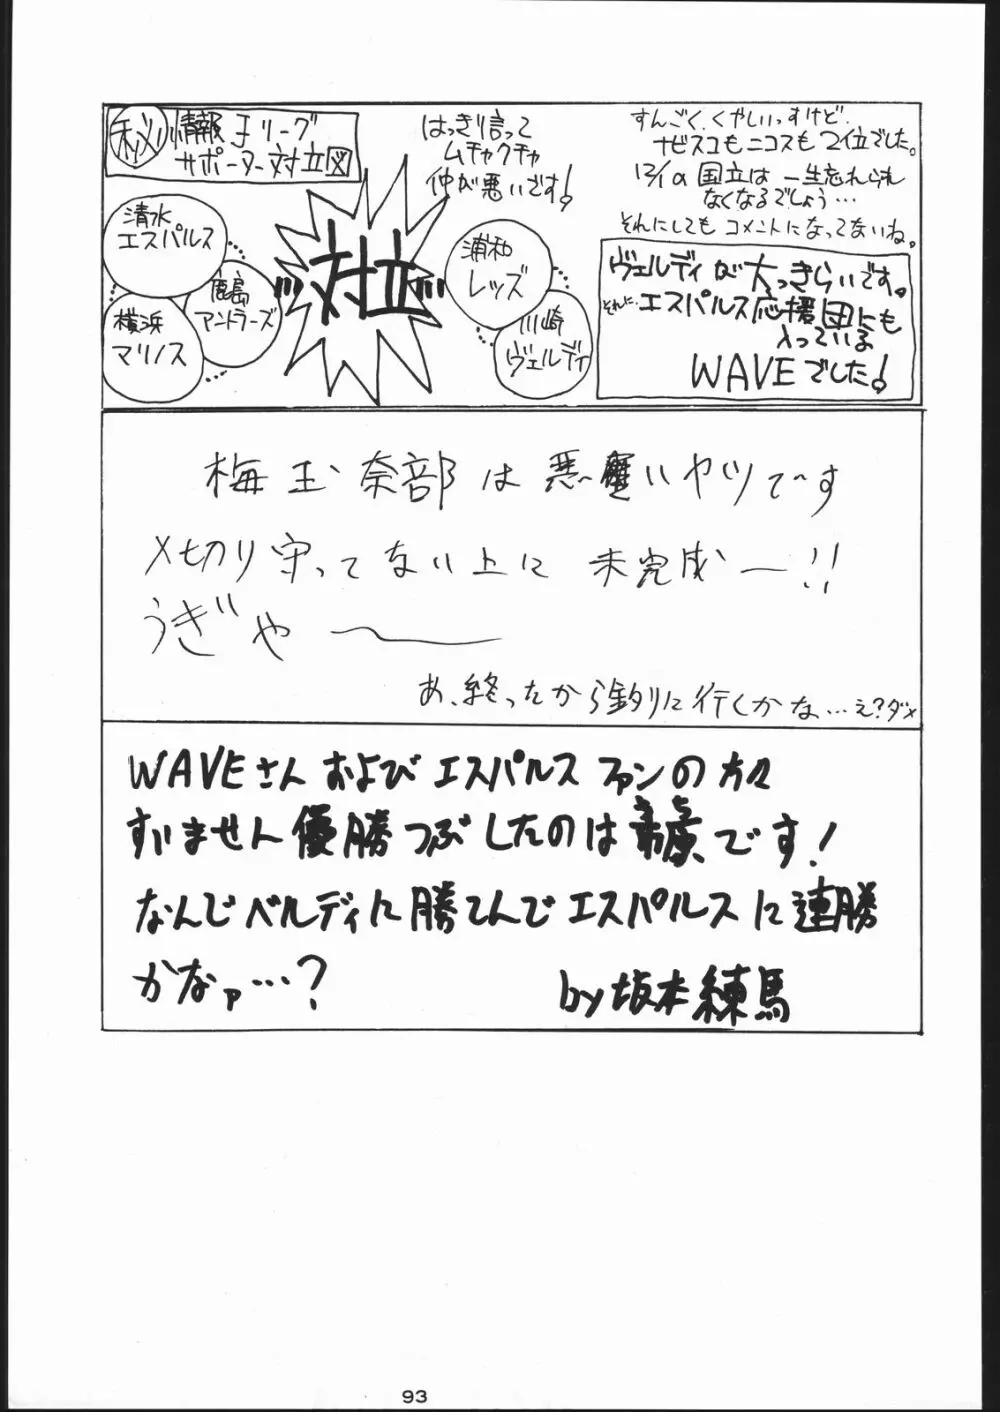 ㊙情報Jリーグ
サポーター対立図
清水
エスパルス
鹿島
アントラーズ
横浜
マリノス
対立
はっきり言って
ムチャクチャ
仲が悪いです!
浦和
レッズ
川崎
ヴェルディ
すんごく、くやしいっすけど、
ナビスコもニコスも2位でした。
12/1の国立は一生忘れられ
なくなるでしょう…
それにしてもコメントになってないね。
ヴェルディが大っきらいです。
それに、エスパルス応援団にも
入っている
WAVEでした!
梅玉奈部は悪いヤツです
〆切り守ってない上に未完成ー!!
うぎゃ〜
あ、終ったから釣りに行くかな…え?ダメ
WAVEさんおよびエスパルスファンの方々
すいません優勝つぶしたのはです!
なんでベルディに勝てんでエスパルスに連勝
かなァ…?
by坂本練馬
93